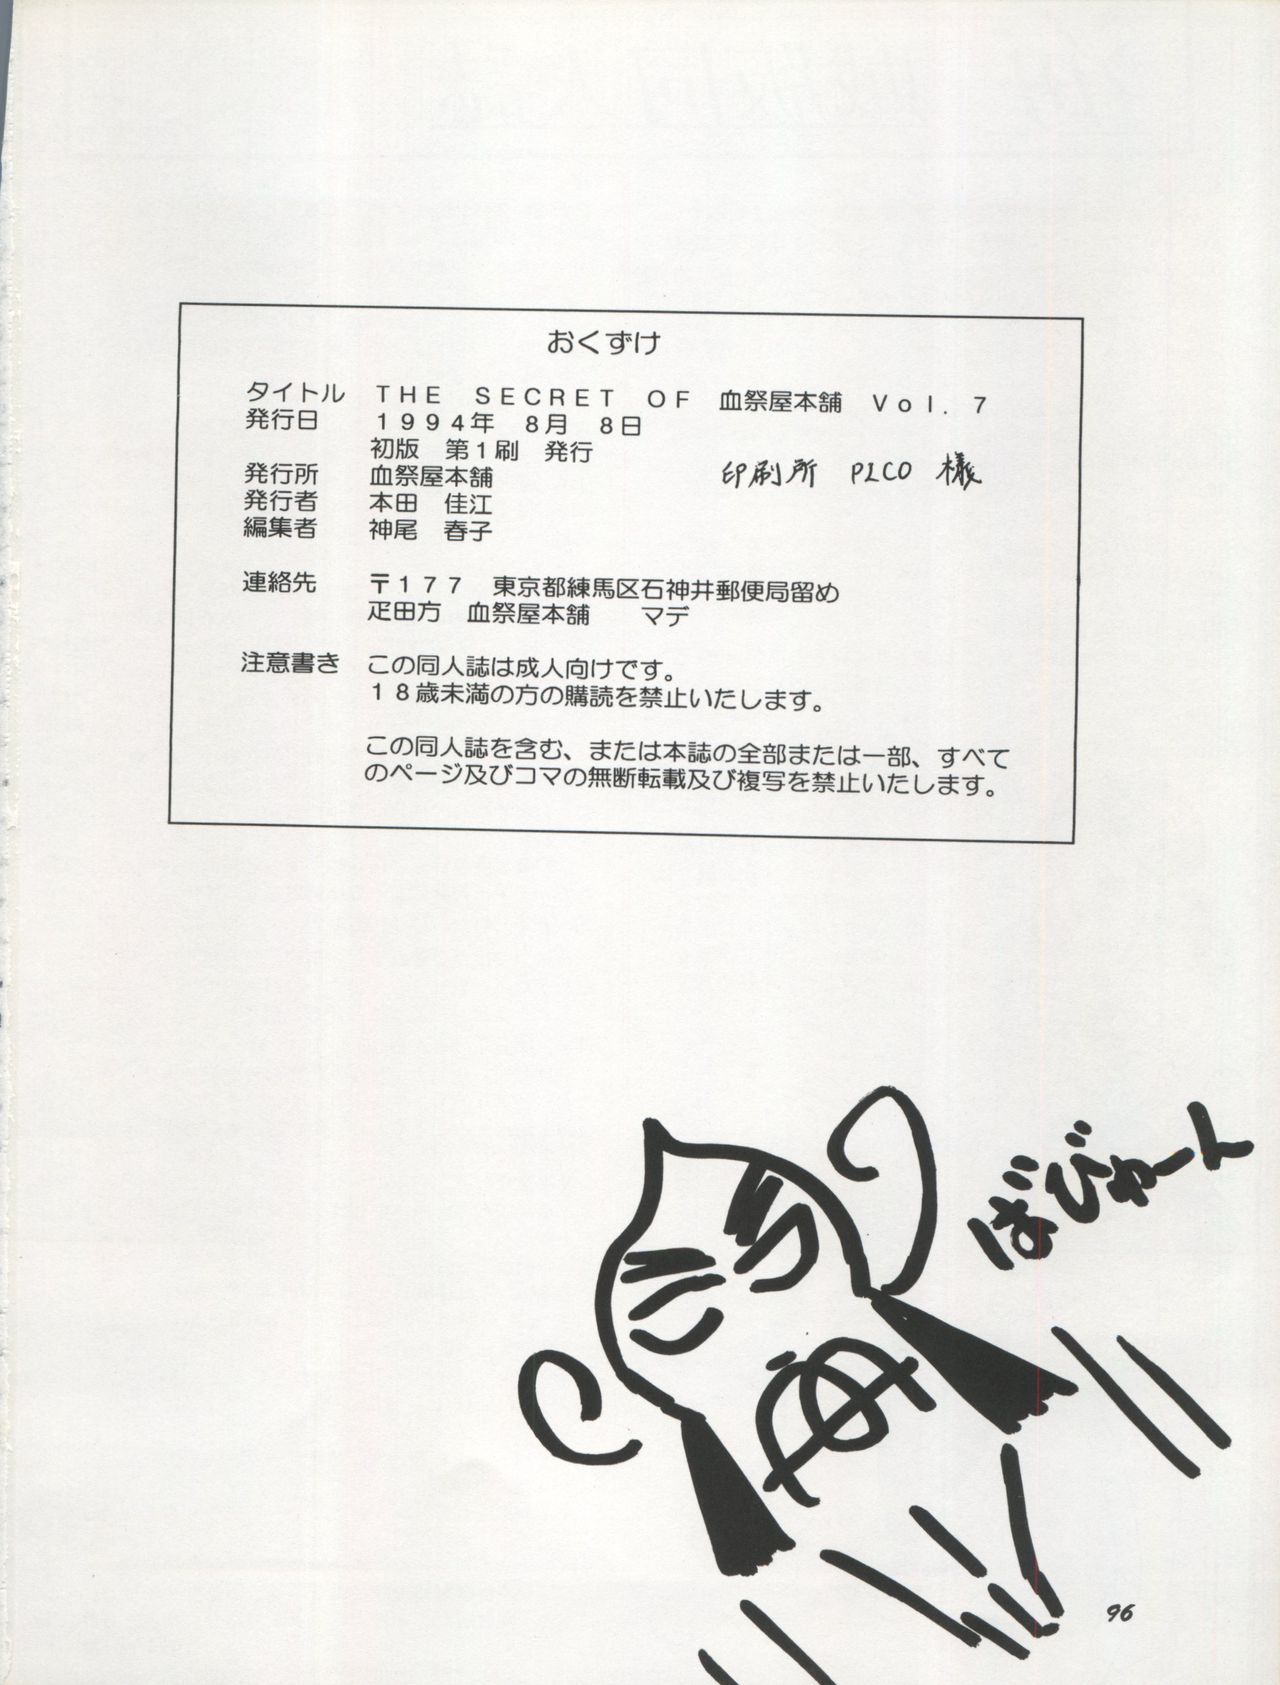 おくずけ
タイトル　ＴＨＥ　ＳＥＣＲＥＴ　ＯＦ　血祭屋本舗　Ｖｏｌ．７
発行日　１９９４年　８月　８日
初版　第１刷　発行
発行所　血祭屋本舗　印刷所　PICO　様
発行者　本田　佳江
編集者　神尾　春子
連絡先　〒１７７　東京都練馬区石神井郵便局留め
疋田方　血祭屋本舗　マデ
注意書き　この同人誌は成人向けです。
１８歳未満の方の購読を禁止いたします。
この同人誌を含む、または本誌の全部または一部、すべて
のページ及びコマの無断転載及び複写を禁止いたします。
ばびゅーん
96